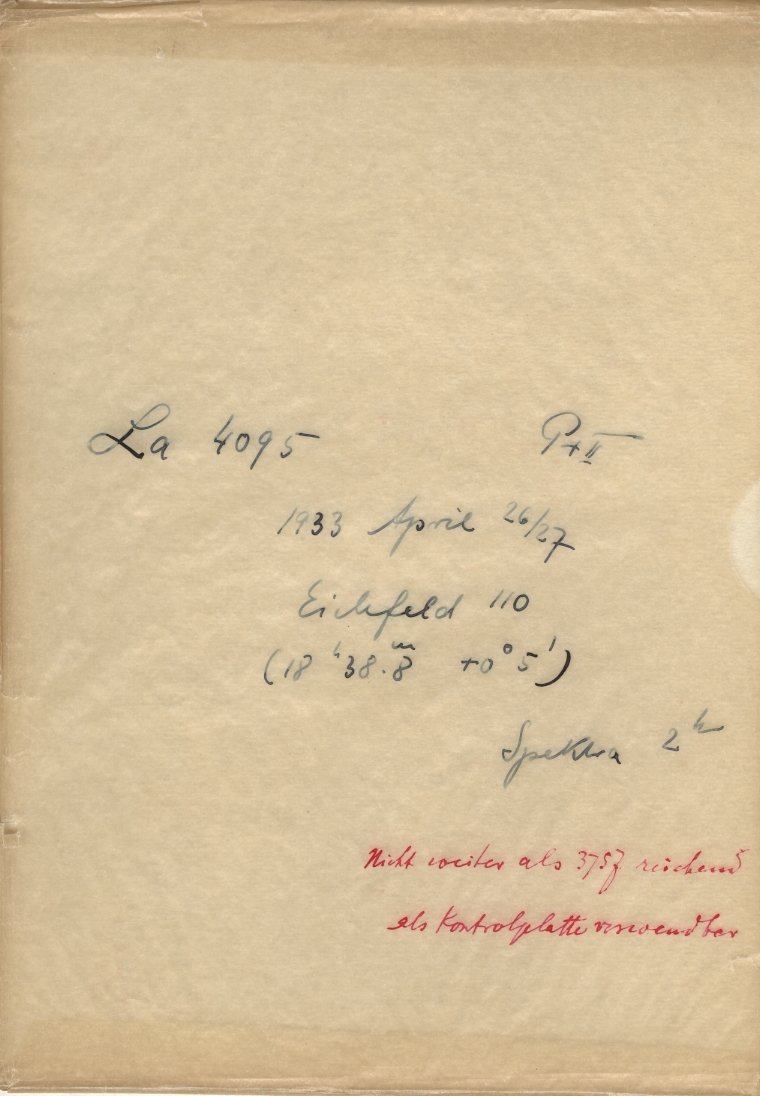 La 4095 P+II
1933 April 26/27
Eichfeld 110
(18ʰ38.8ᵐ +0°5')
Spektra 2ʰ
Nicht weiter als reichend
als Kontrolplatte verwendbar